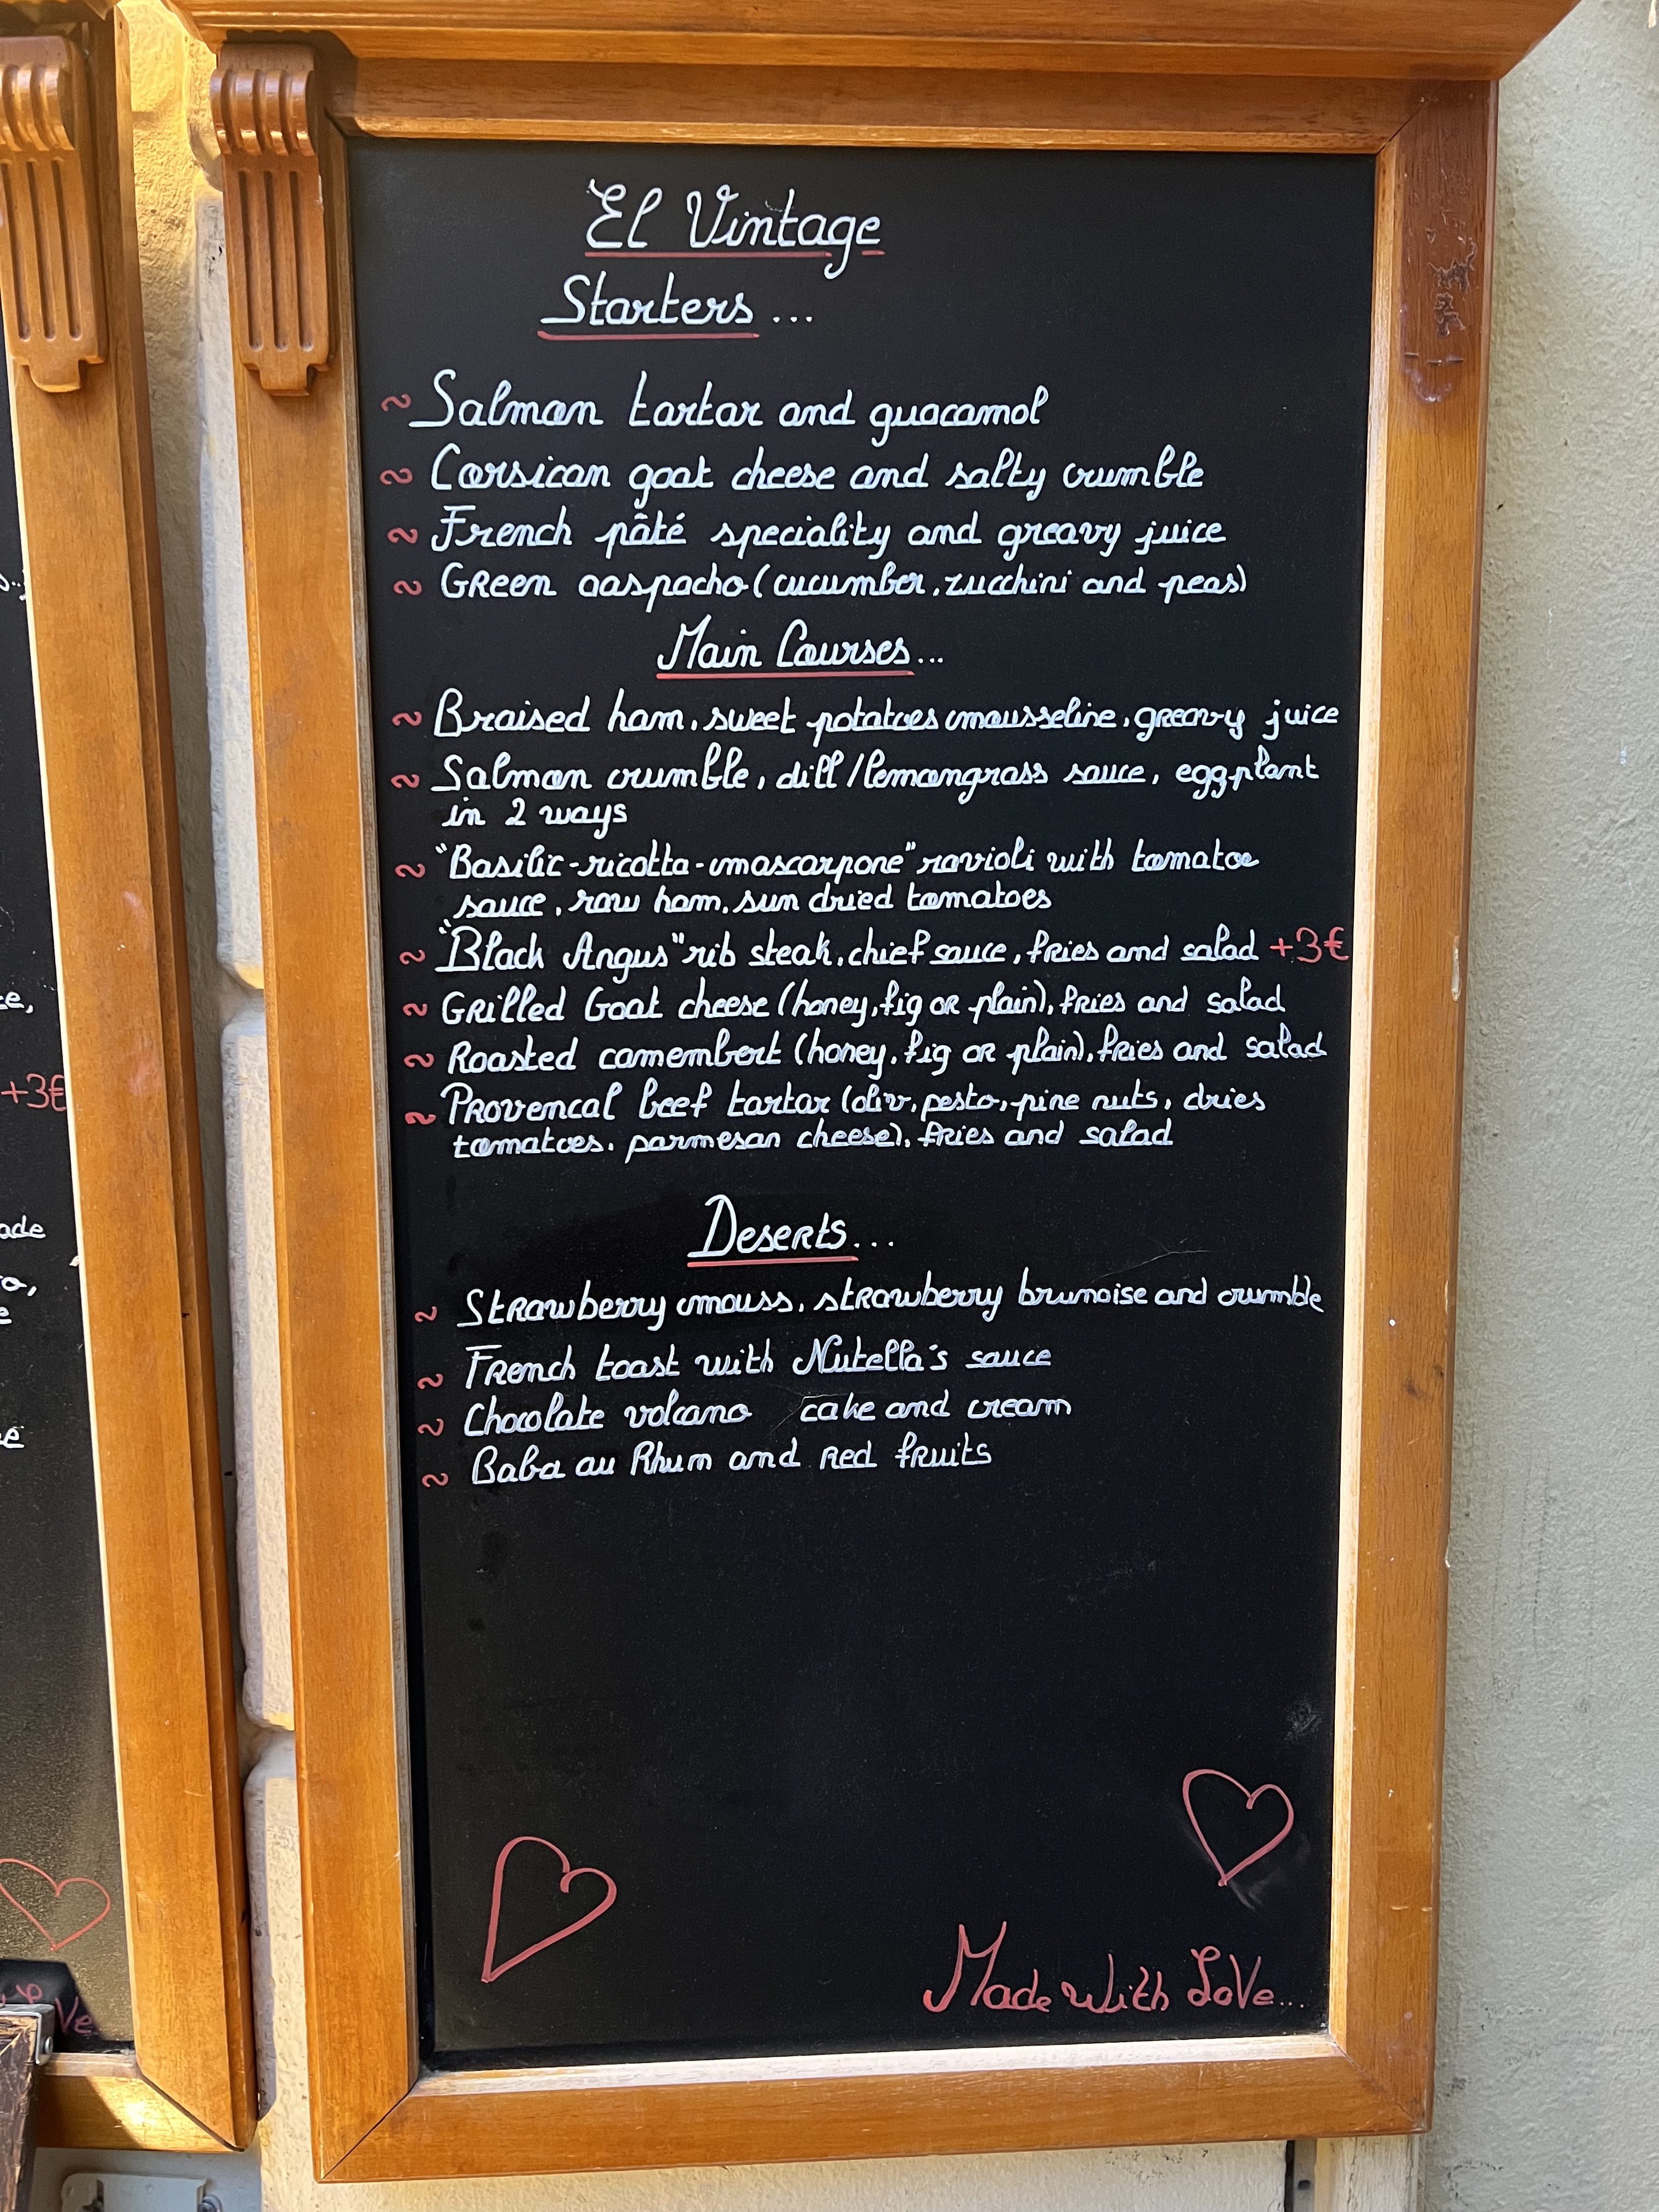 El Vintage
Starters...
~ Salmon tartar and guacamol
~ Corsican goat cheese and salty crumble
~ French pâté speciality and greavy juice
~ Green gaspacho (cucumber, zucchini and peas)
Main Courses...
~ Braised ham, sweet potatoes mousseline, greavy juice
~ Salmon crumble, dill/lemongrass sauce, eggplant
in 2 ways
~ "Basilic-ricotta-mascarpone" ravioli with tomatoe
sauce, raw ham, sun dried tomatoes
~ "Black Angus" rib steak, chief sauce, fries and salad +3€
~ Grilled Goat cheese (honey, fig or plain), fries and salad
~ Roasted camembert (honey, fig or plain), fries and salad
~ Provencal beef tartar (oliv, pesto, pine nuts, dries
tomatoes, parmesan cheese), fries and salad
Deserts...
~ Strawberry mouss, strawberry brunoise and crumble
~ French toast with Nutella's sauce
~ Chocolate volcano cake and cream
~ Baba au Rhum and red fruits
Made With LoVe...
+3€